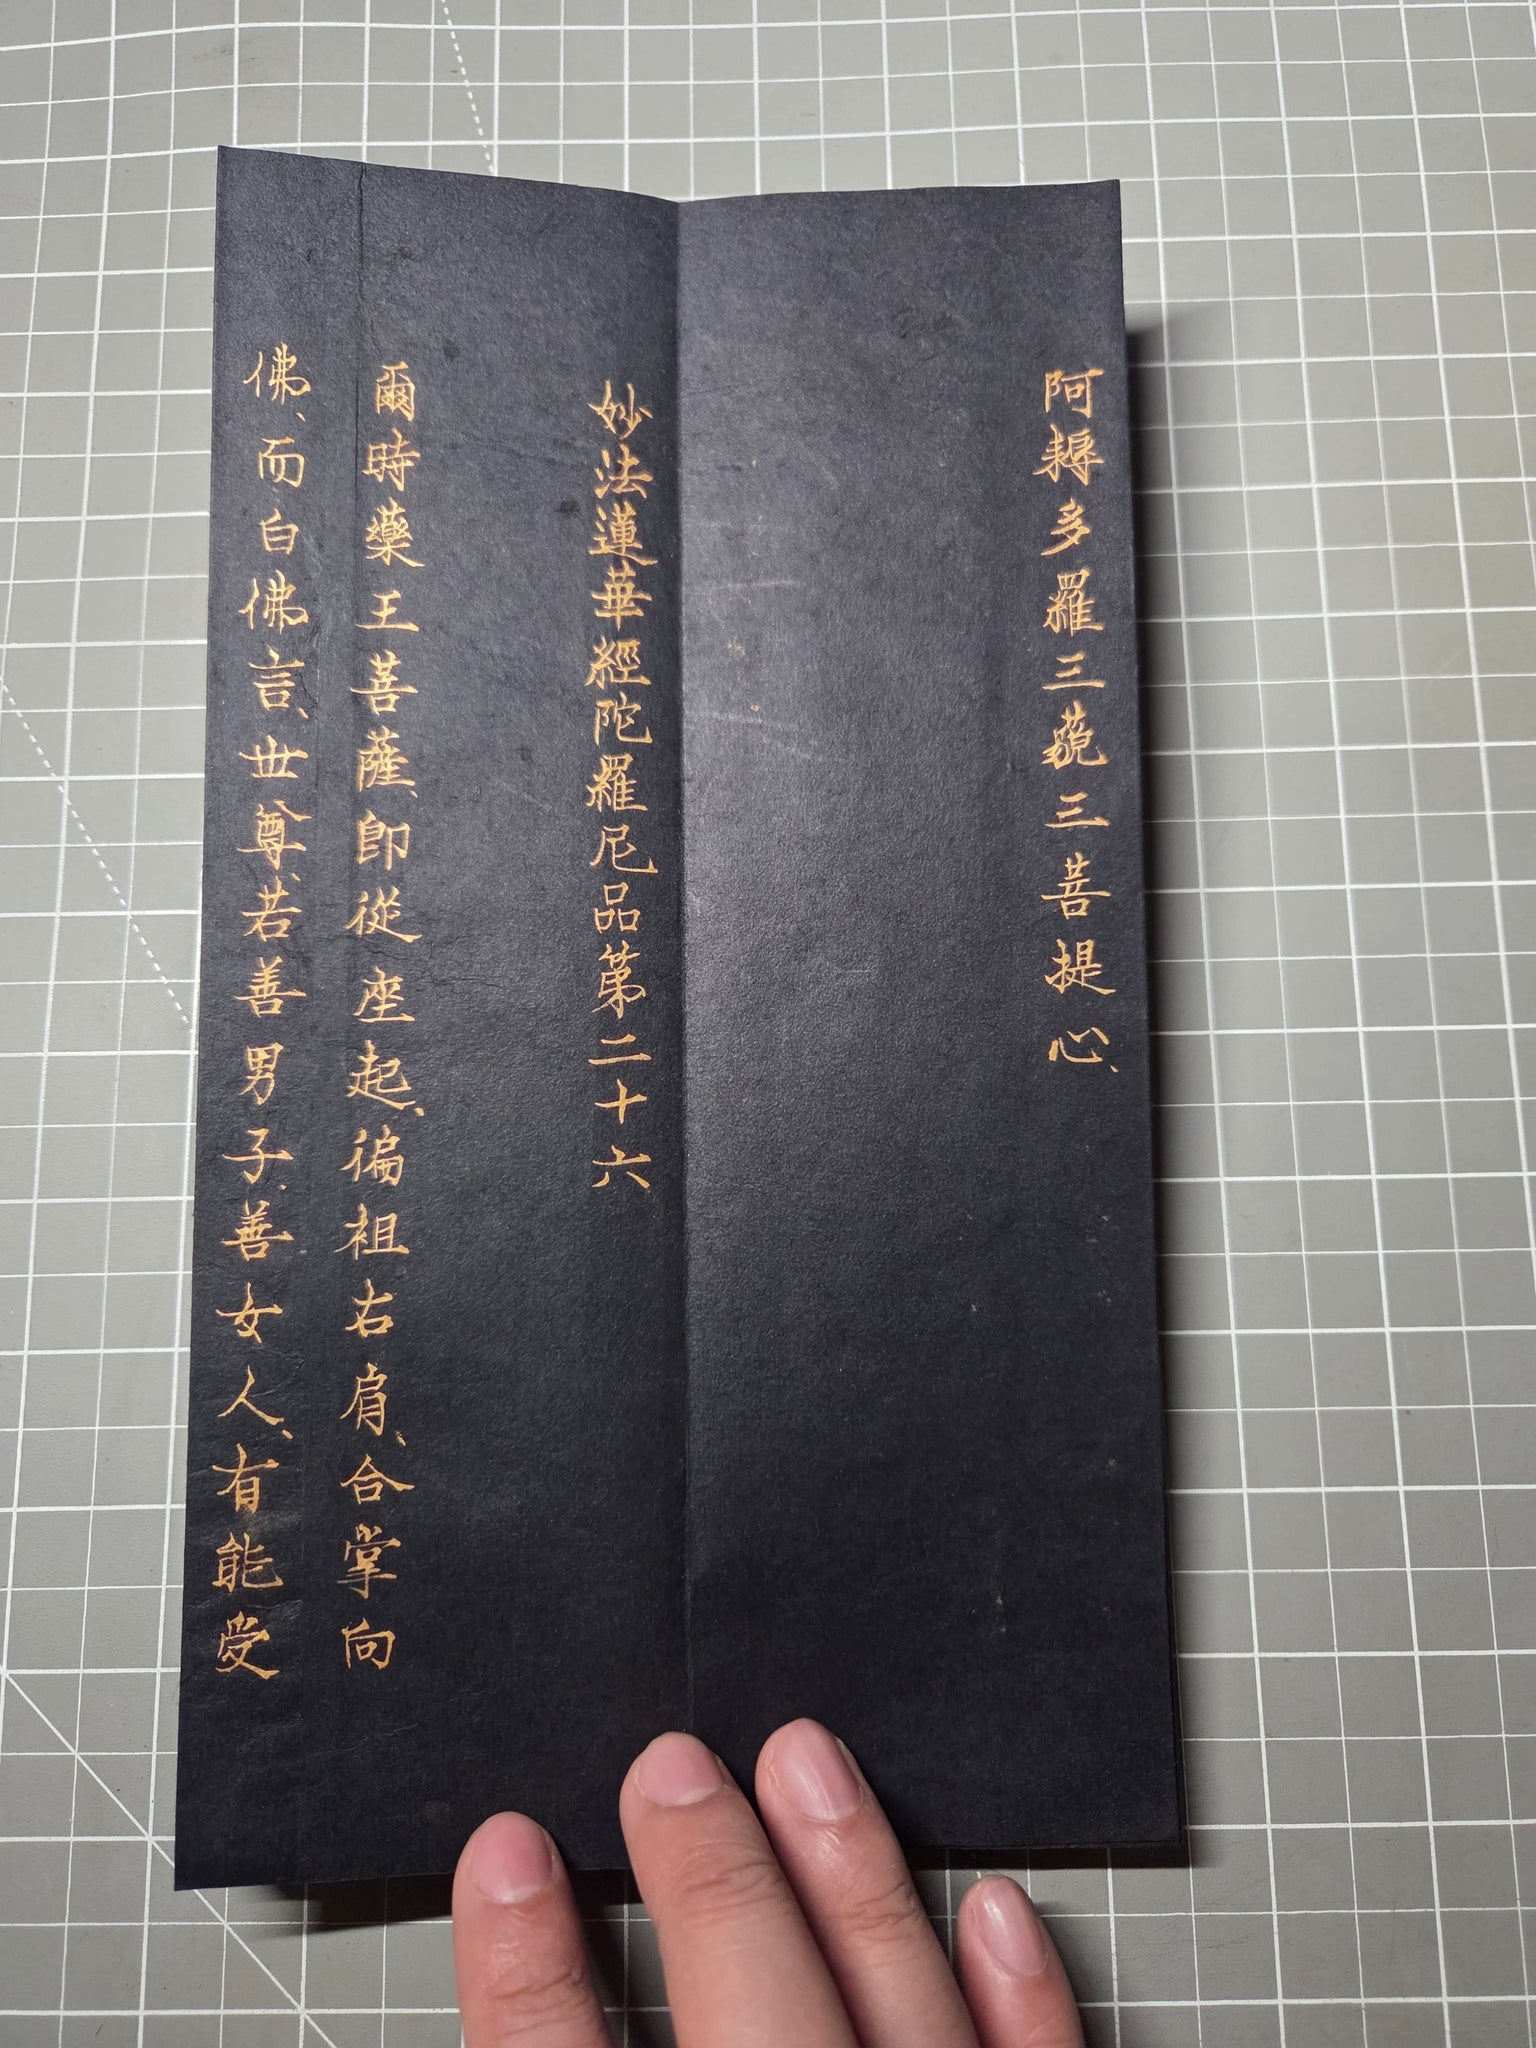 阿耨多羅三藐三菩提心、
妙法蓮華經陀羅尼品第二十六
爾時藥王菩薩、即從座起、徧袒右肩、合掌向
佛、而白佛言、世尊、若善男子、善女人、有能受